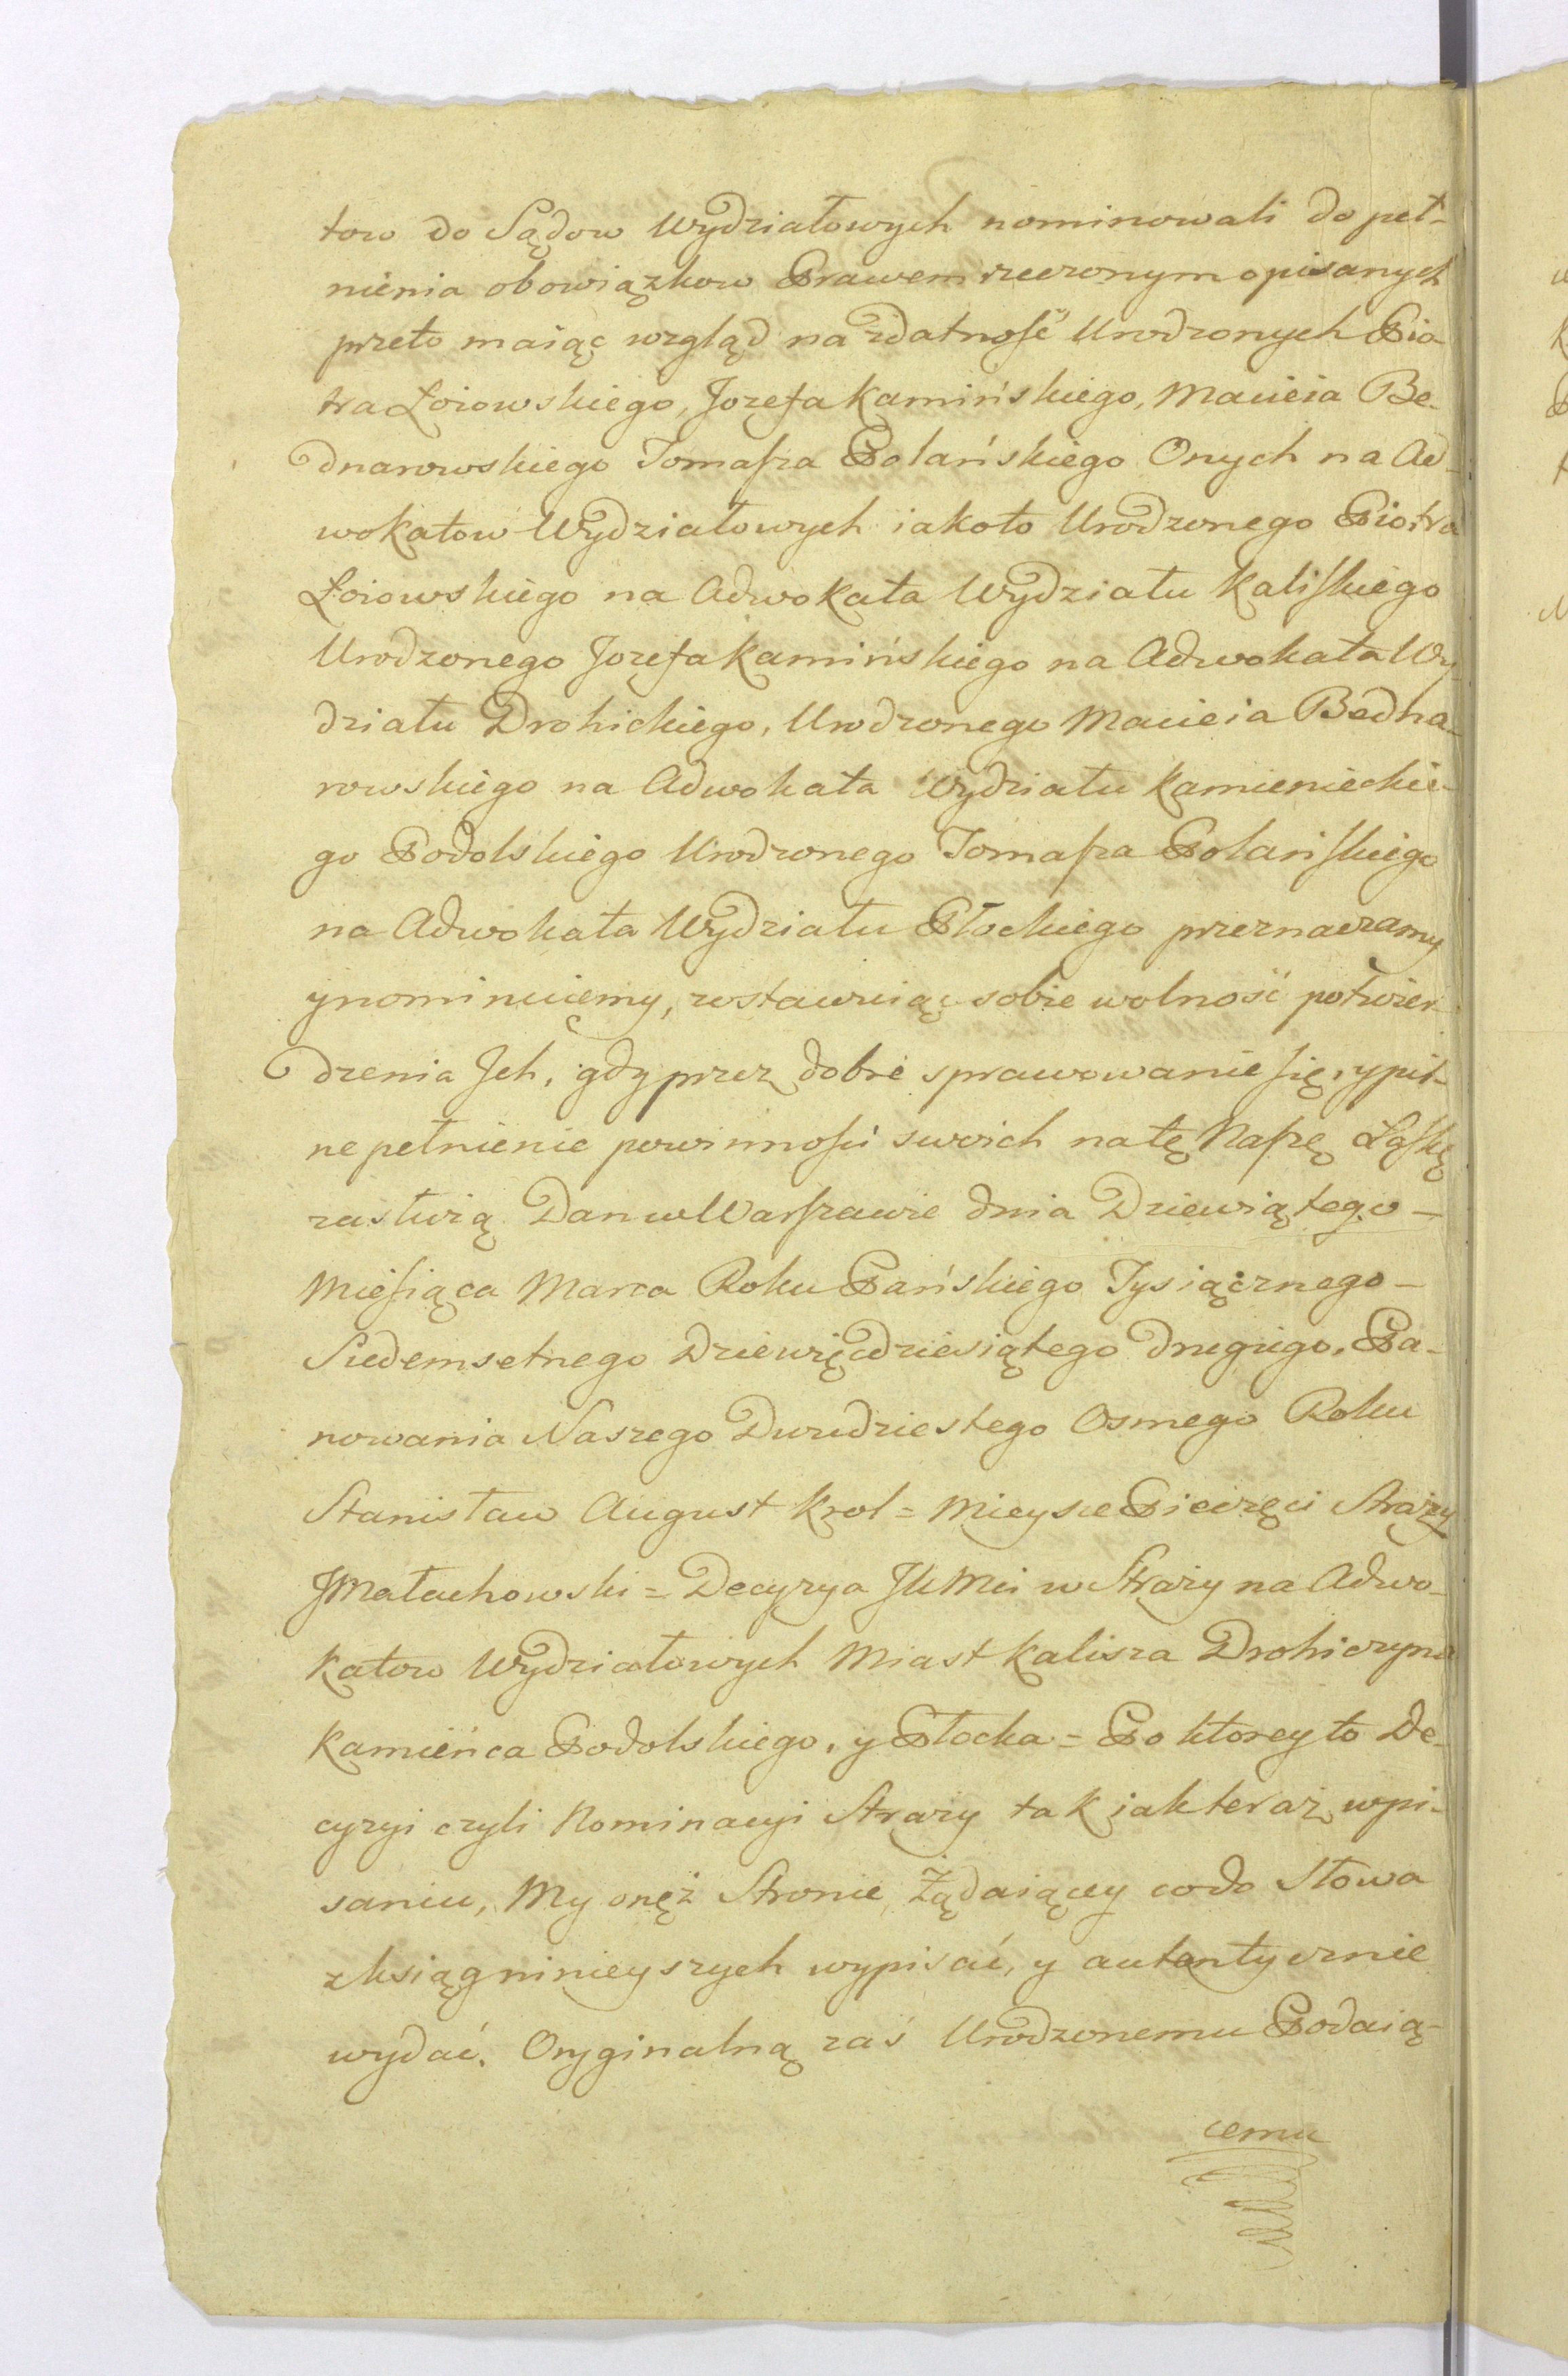 tow do Sądow Wydziałowych nominowali do peł-
nienia obowiązkow Prawem rzeczonym opisanych
przeto maiąc wzgląd na zdatność Urodzonych Pio-
tra Łoiowskiego, Jozefa Kamińskiego, Macieia Be-
dnarowskiego Tomasza Polańskiego Onych na Ad-
wokatow Wydziałowych iakoto Urodzonego Piotra
Łoiowskiego na Adwokata Wydziału Kaliskiego
Urodzonego Jozefa Kamińskiego na Adwokata Wy-
działu Drohickiego, Urodzonego Macieia Bedna-
rowskiego na Adwokata Wydziału Kamienieckie-
go Podolskiego Urodzonego Tomasza Polańskiego
na Adwokata Wydziału Płockiego przeznaczamy
ynominuiemy, zostawuiąc sobie wolność potwier-
dzenia Jch, gdy przez dobre sprawowanie się, y pil-
ne pełnienie powinności swoich na tę Naszę Łaskę
zasłużą Dan w Warszawie dnia Dziewiątego –
Miesiąca Marca Roku Pańskiego Tysiącznego –
Siedemsetnego Dziewięćdziesiątego Drugiego. Pa-
nowania Naszego Dwudziestego Osmego Roku
Stanisław August Krol = Mieysce Pieczęci Straży
JMałachowski = Decyzya JKMci w Straży na Adwo-
katow Wydziałowych Miast Kalisza Drohiczyna
Kamieńca Podolskiego, y Płocka = Po ktorey to De-
cyzyi czyli Nominacyi Straży tak iak teraz wpi-
saniu, My onęż Stronie Żądaiącey co do Słowa
z Ksiąg ninieyszych wypisać, y autentycznie
wydać. Oryginalną zaś Urodzonemu Podaią-
cemu